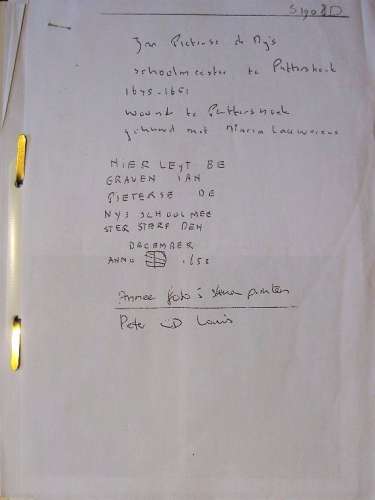 Jan Pieterse de Nijs
schoolmeester te Puttershoek
1645-1651
woond te Puttershoek
gehuwd met Maria Lauwereus
HIER LEYT BE
GRAVEN IAN
PIETERSE DE
NYS SCHOOLMEE
STER STERF DEN
DACEMBER
ANNO 165
foto's
Peter Louis